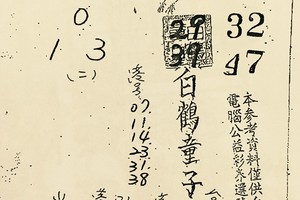 0
1 3
(二)
港号
07
11
14
23
31
38
29
39
白鶴童子
32
47
本参考資料僅供
電腦公益彩券選